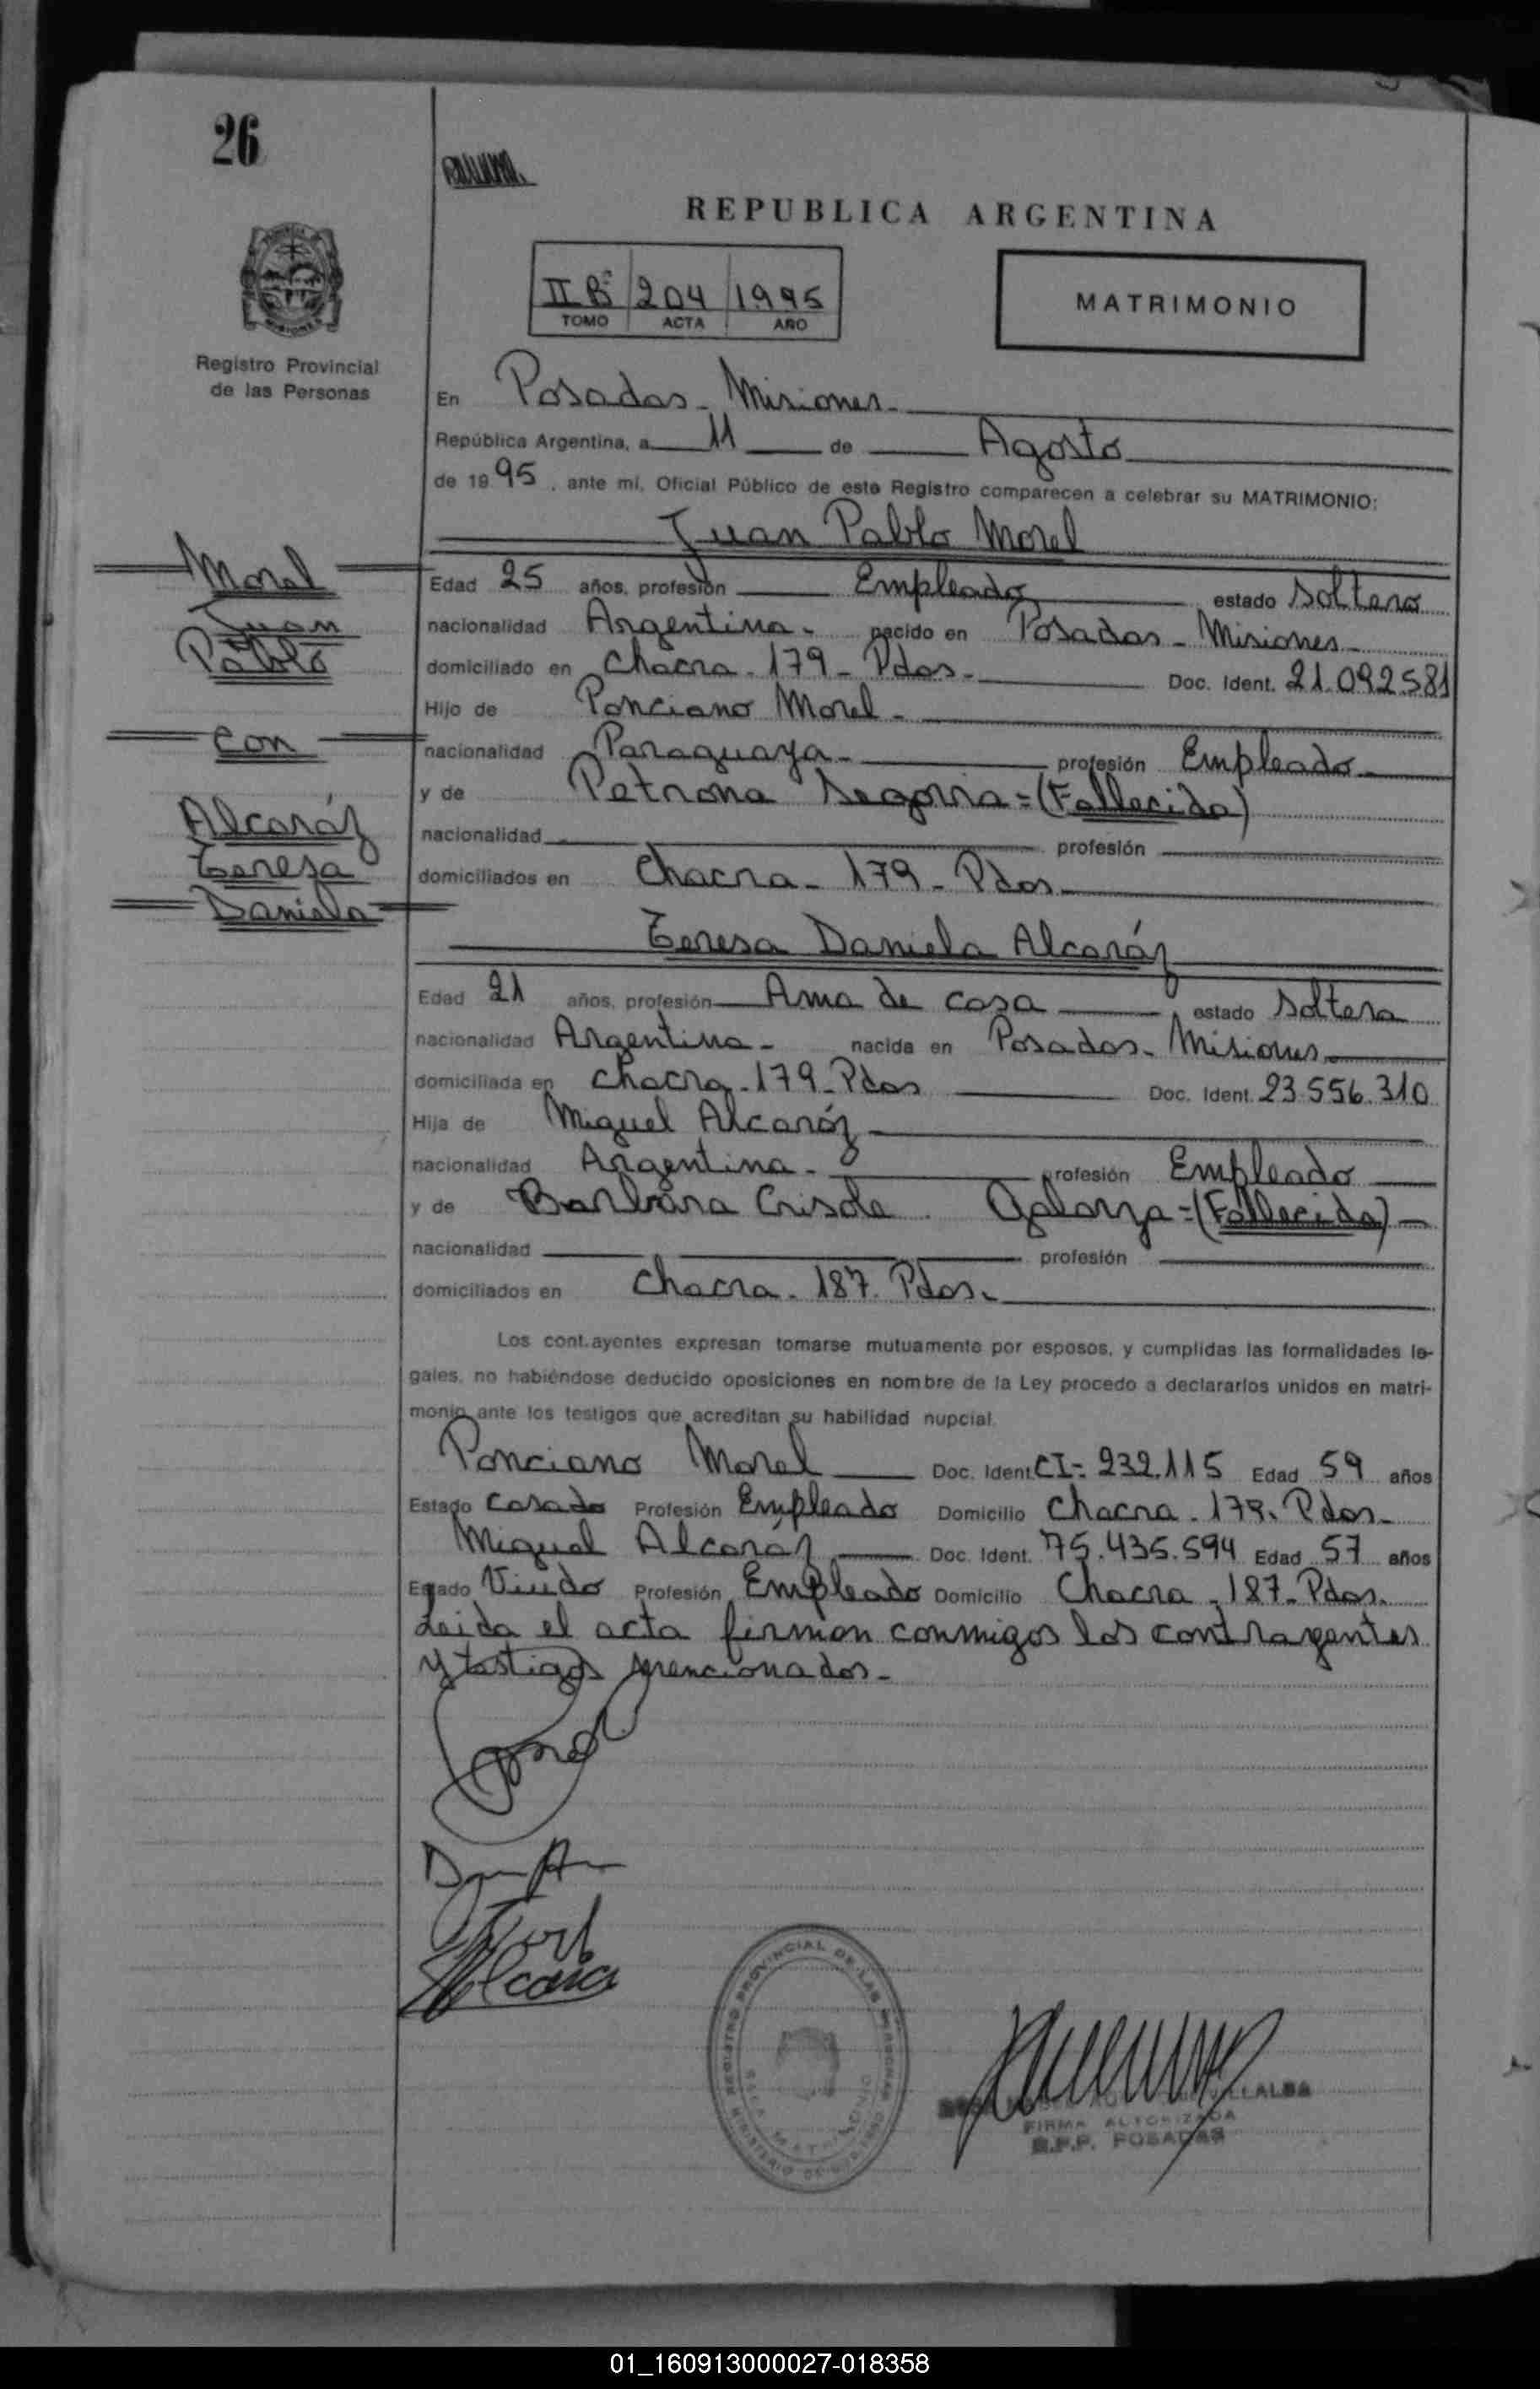 26
REPUBLICA ARGENTINA
II Bº 204 1995
TOMO ACTA AÑO
MATRIMONIO
Registro Provincial
de las Personas
En Posadas - Misiones -
República Argentina, a 11 de Agosto
de 1995, ante mí, Oficial Público de este Registro comparecen a celebrar su MATRIMONIO:
Juan Pablo Morel
Morel
Juan
Pablo
con
Alcaráz
Teresa
Daniela
Edad 25 años, profesión Empleado estado soltero
nacionalidad Argentina - nacido en Posadas - Misiones -
domiciliado en Chacra - 179 - Pdas - Doc. Ident. 21.092.581
Hijo de Ponciano Morel -
nacionalidad Paraguaya - profesión Empleado -
y de Petrona Segovia = (Fallecida)
nacionalidad profesión
domiciliados en Chacra - 179 - Pdas -
Teresa Daniela Alcaráz
Edad 21 años, profesión Ama de casa estado soltera
nacionalidad Argentina - nacida en Posadas - Misiones -
domiciliada en Chacra - 179 - Pdas Doc. Ident. 23.556.310
Hija de Miguel Alcaráz
nacionalidad Argentina - profesión Empleado
y de Barbara Crisola = (Fallecida) -
nacionalidad profesión
domiciliados en Chacra - 187 - Pdas -
Los cont.ayentes expresan tomarse mutuamente por esposos, y cumplidas las formalidades le-
gales, no habiéndose deducido oposiciones en nombre de la Ley procedo a declararlos unidos en matri-
monio ante los testigos que acreditan su habilidad nupcial.
Ponciano Morel Doc. Ident. CI= 232.115 Edad 59 años
Estado Casado Profesión Empleado Domicilio Chacra - 179 - Pdas -
Miguel Alcaráz Doc. Ident. 75.435.594 Edad 57 años
Estado Viudo Profesión Empleado Domicilio Chacra - 187 - Pdas.
Leida el acta firman conmigos los contrayentes
y testigos mencionados -
REGISTRO PROVINCIAL DE LAS PERSONAS
MINISTERIO DE GOBIERNO
VILLALBA
FIRMA AUTORIZADA
R.P.P. POSADAS
01_160913000027-018358